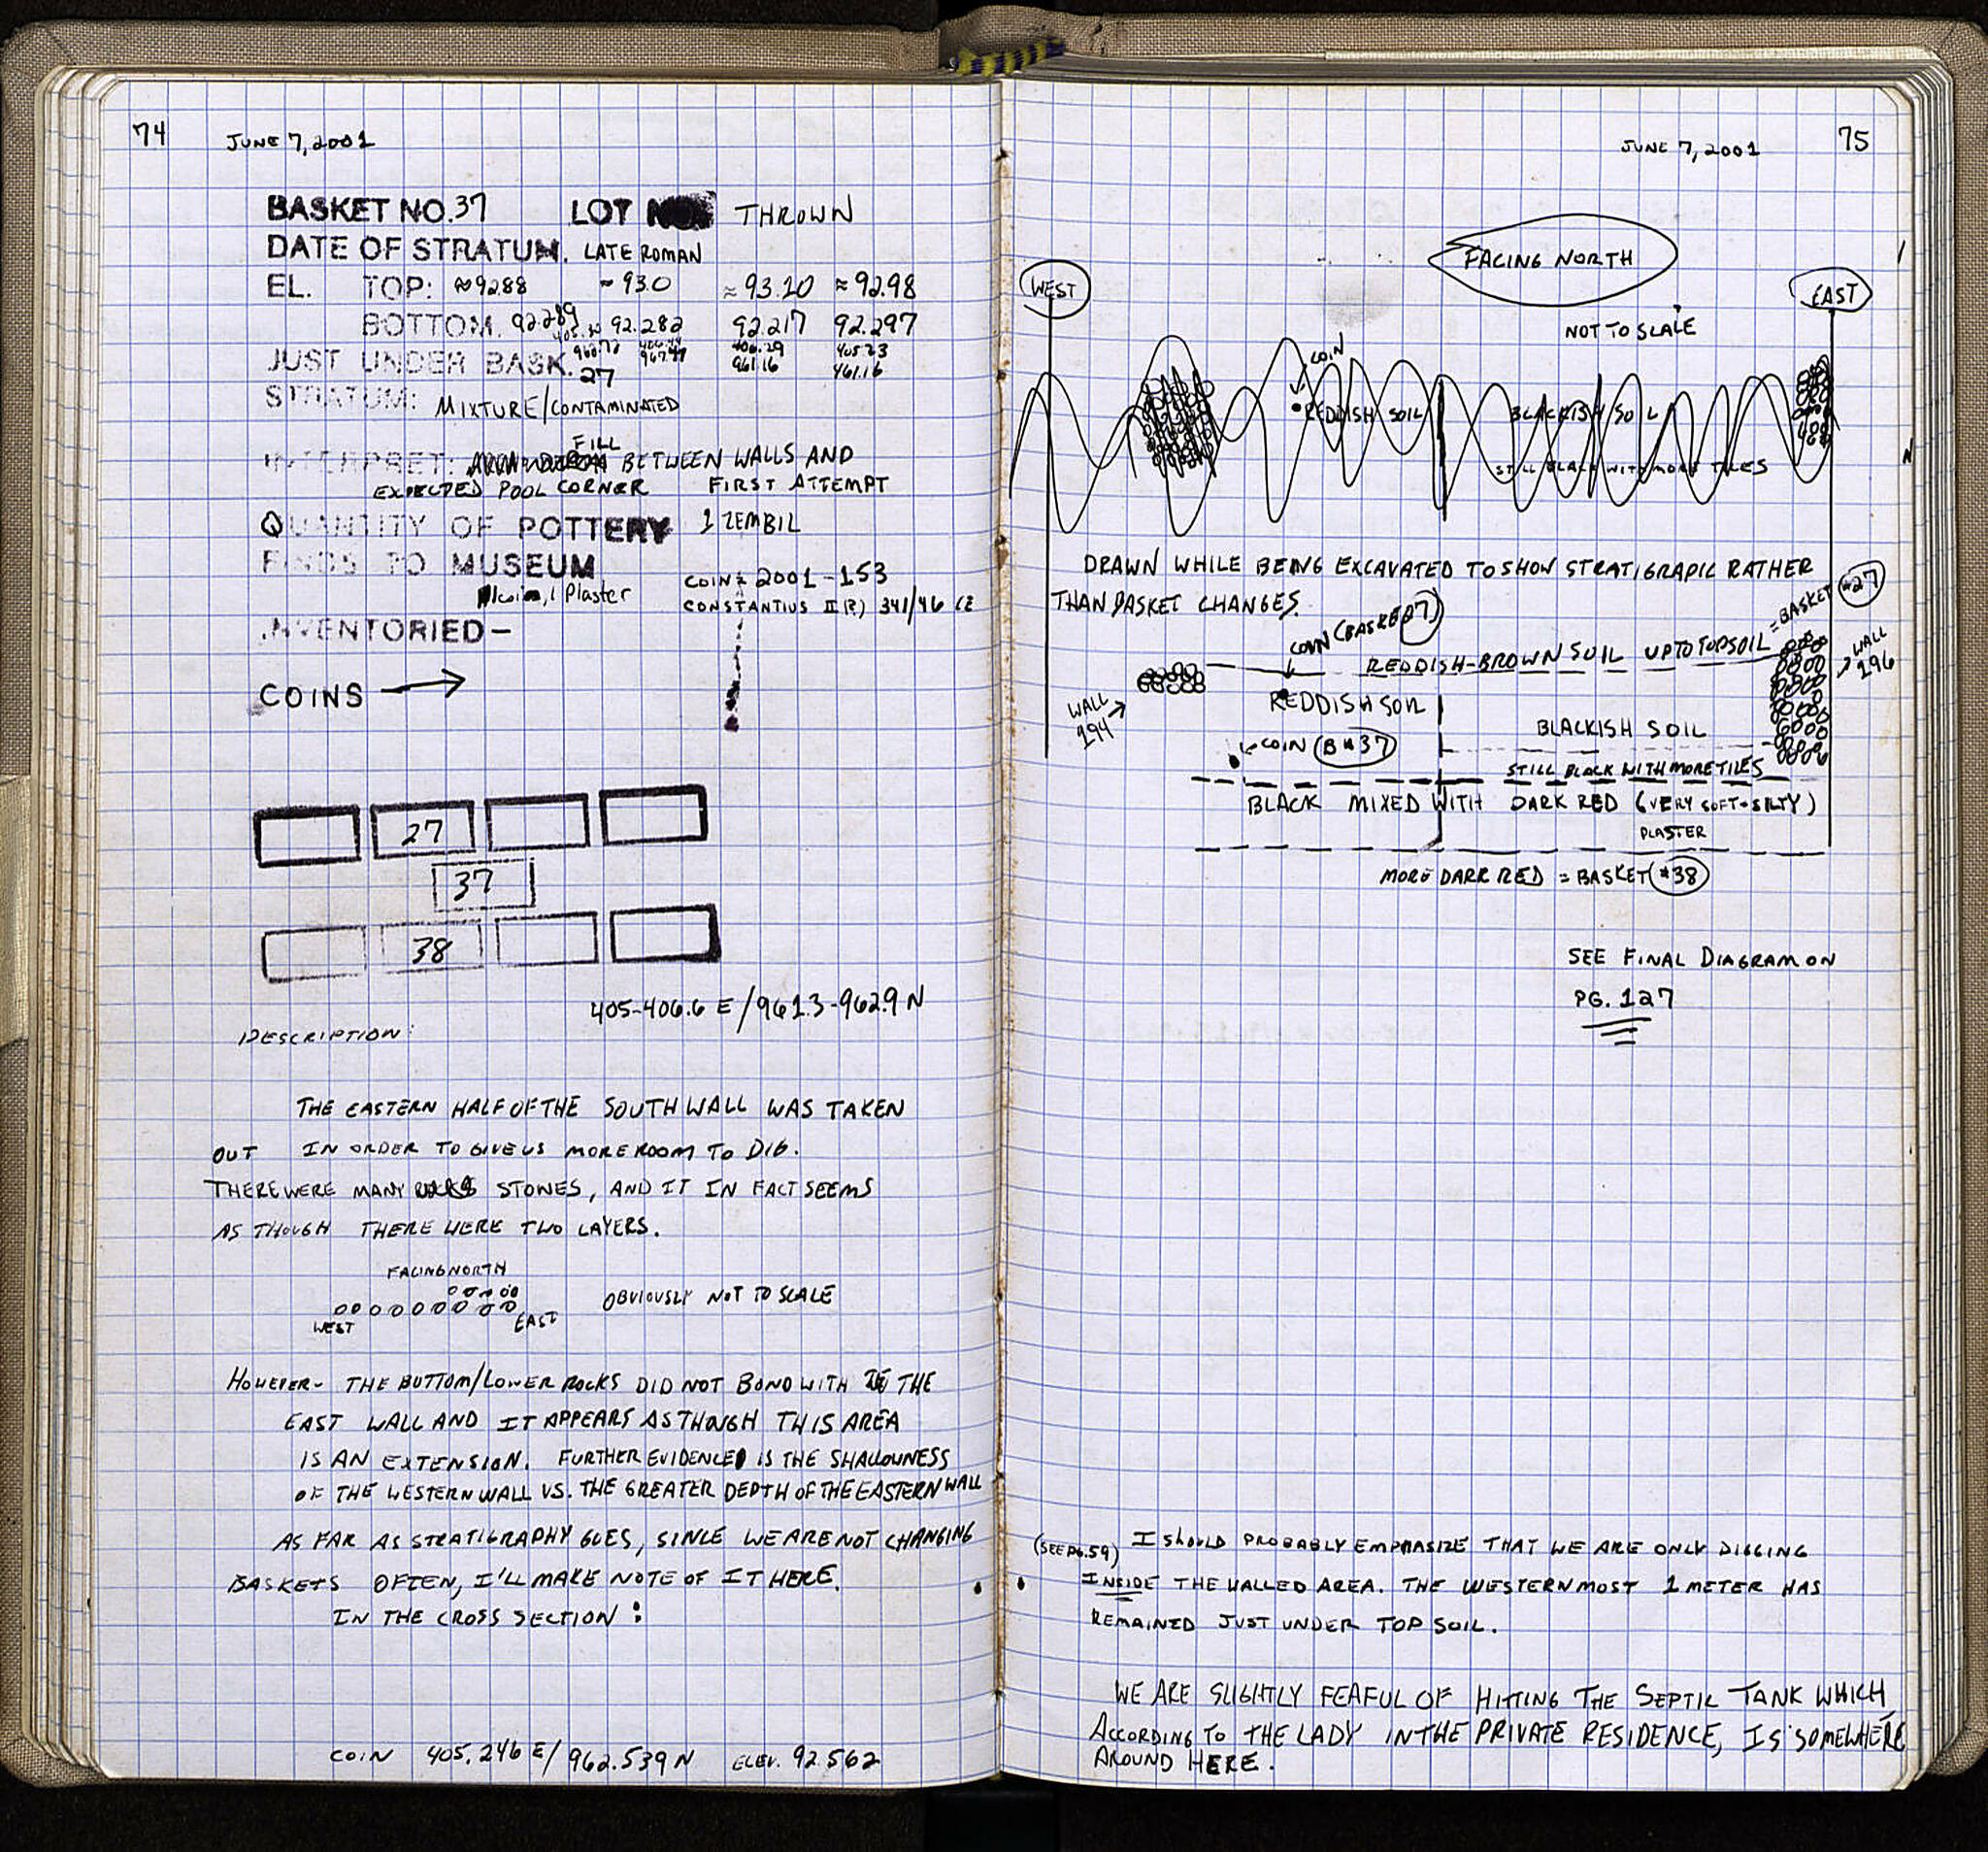 74
JUNE 7, 2001
BASKET NO. 37 LOT THROWN
DATE OF STRATUM. LATE ROMAN
EL. TOP: ≈92.88 ≈ 93.0 ≈ 93.10 ≈ 92.98
BOTTOM. 92.289 92.282 92.217 92.297
406.29 405.23
JUST UNDER BASK. 27 961.16 461.16
STRATUM: MIXTURE/CONTAMINATED
FILL
INTERPRET: BETWEEN WALLS AND
EXPECTED POOL CORNER FIRST ATTEMPT
QUANTITY OF POTTERY 1 ZEMBIL
FINDS TO MUSEUM
1 coin, 1 Plaster
COIN: 2001-153
CONSTANTIUS II (?) 341/46 CE
INVENTORIED-
COINS →
27
37
38
405-406.6 E/961.3-962.9 N
DESCRIPTION:
THE EASTERN HALF OF THE SOUTH WALL WAS TAKEN
OUT IN ORDER TO GIVE US MORE ROOM TO DIG.
THERE WERE MANY STONES, AND IT IN FACT SEEMS
AS THOUGH THERE WERE TWO LAYERS.
FACING NORTH
WEST EAST
OBVIOUSLY NOT TO SCALE
HOWEVER- THE BOTTOM/LOWER ROCKS DID NOT BOND WITH THE
EAST WALL AND IT APPEARS AS THOUGH THIS AREA
IS AN EXTENSION. FURTHER EVIDENCE IS THE SHALLOWNESS
OF THE WESTERN WALL VS. THE GREATER DEPTH OF THE EASTERN WALL
AS FAR AS STRATIGRAPHY GOES, SINCE WE ARE NOT CHANGING
BASKETS OFTEN, I'LL MAKE NOTE OF IT HERE.
IN THE CROSS SECTION:
COIN 405.246 E/962.539 N ELEV. 92.562
JUNE 7, 2001
75
FACING NORTH
WEST
EAST
NOT TO SCALE
COIN
REDDISH SOIL
BLACKISH SOIL
STILL BLACK WITH MORE TILES
DRAWN WHILE BEING EXCAVATED TO SHOW STRATIGRAPIC RATHER
THAN BASKET CHANGES.
COIN (BASKET 27)
REDDISH-BROWN SOIL UP TO TOPSOIL = BASKET #27
WALL 196
WALL 194
REDDISH SOIL
BLACKISH SOIL
COIN (B#37)
STILL BLACK WITH MORE TILES
BLACK MIXED WITH DARK RED (VERY SOFT+SILTY)
PLASTER
MORE DARK RED = BASKET #38
SEE FINAL DIAGRAM ON
PG. 127
(SEE PG. 59) I SHOULD PROBABLY EMPHASIZE THAT WE ARE ONLY DIGGING
INSIDE THE WALLED AREA. THE WESTERNMOST 1 METER HAS
REMAINED JUST UNDER TOP SOIL.
WE ARE SLIGHTLY FEAFUL OF HITTING THE SEPTIC TANK WHICH
ACCORDING TO THE LADY IN THE PRIVATE RESIDENCE, IS SOMEWHERE
AROUND HERE.